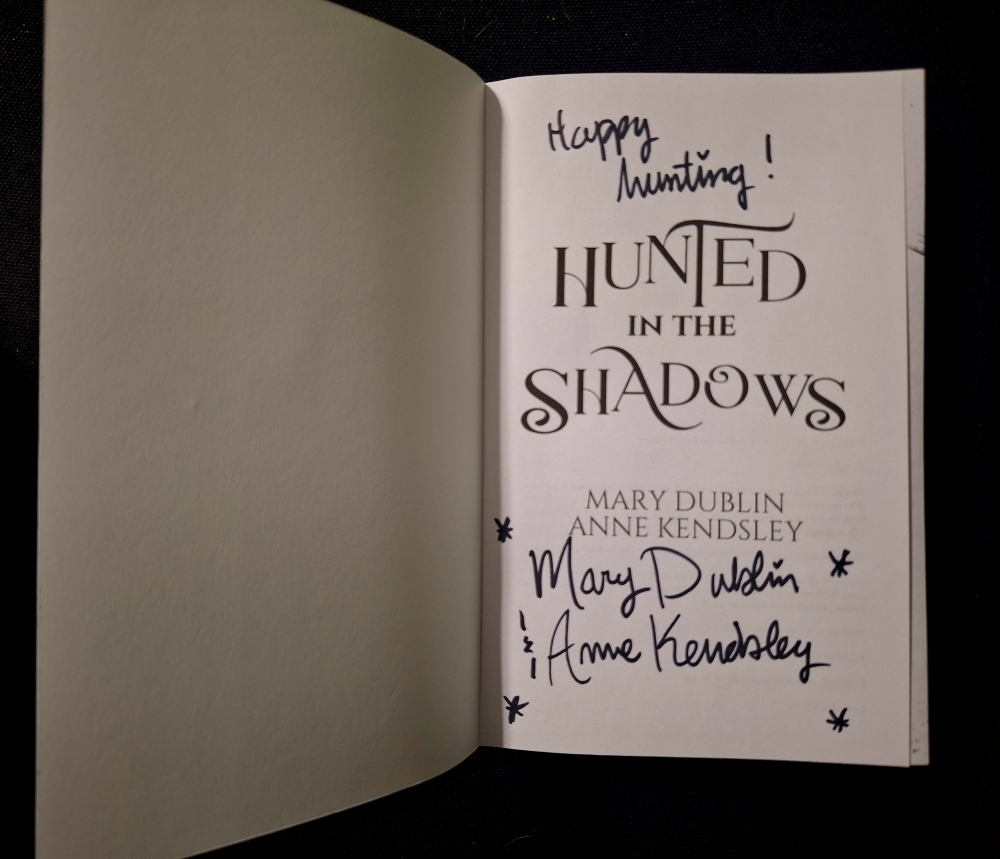 Happy
hunting!
HUNTED
IN THE
SHADOWS
MARY DUBLIN
ANNE KENDSLEY
Mary Dublin
& Anne Kendsley